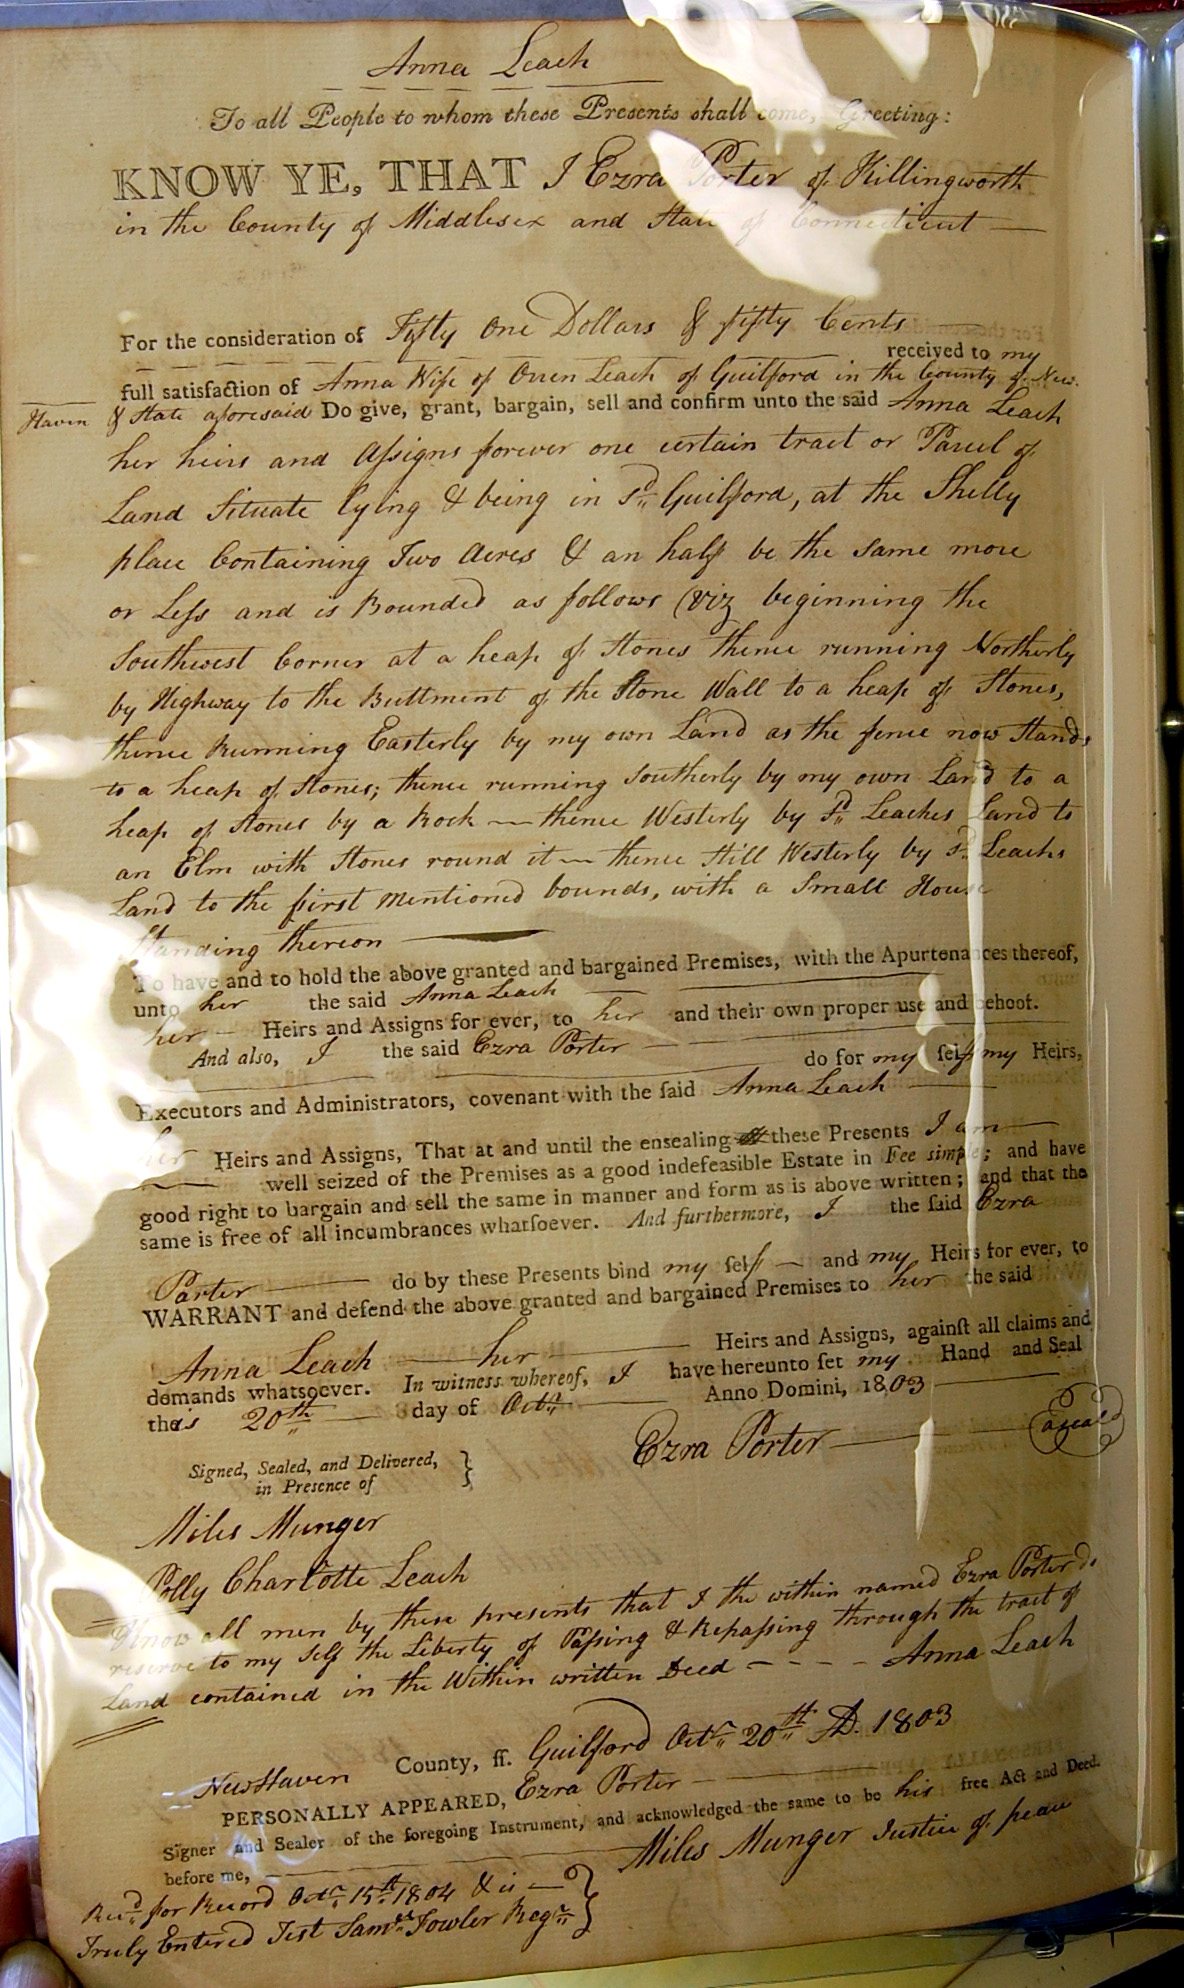 Anna Leach
To all People to whom these Presents shall come, Greeting:
KNOW YE, THAT I Ezra Porter of Killingworth
in the County of Middlesex and State of Connecticut
For the consideration of Fifty One Dollars & fifty Cents
received to my
full satisfaction of Anna Wife of Oren Leach of Guilford in the County of New-
Haven & State aforesaid Do give, grant, bargain, sell and confirm unto the said Anna Leach
her heirs and Assigns forever one certain tract or Parcel of
Land Situate lying & being in sd Guilford, at the Shelly
place Containing Two Acres & an half be the same more
or Less and is Bounded as follows (viz beginning the
Southwest Corner at a heap of Stones thence running Northerly
by Highway to the Buttment of the Stone Wall to a heap of Stones,
thence Running Easterly by my own Land as the fence now Stands
to a heap of Stones; thence running Southerly by my own Land to a
heap of Stones by a Rock — thence Westerly by sd Leaches Land to
an Elm with Stones round it — thence Still Westerly by sd Leachs
Land to the first Mentioned bounds, with a Small House
Standing thereon
To have and to hold the above granted and bargained Premises, with the Apurtenances thereof,
unto her the said Anna Leach
her Heirs and Assigns for ever, to her and their own proper use and behoof.
And also, I the said Ezra Porter do for my self my Heirs,
Executors and Administrators, covenant with the said Anna Leach
her Heirs and Assigns, That at and until the ensealing these Presents I am
well seized of the Premises as a good indefeasible Estate in Fee simple; and have
good right to bargain and sell the same in manner and form as is above written; and that the
same is free of all incumbrances whatsoever. And furthermore, I the said Ezra
Porter do by these Presents bind my self and my Heirs for ever, to
WARRANT and defend the above granted and bargained Premises to her the said
Anna Leach her Heirs and Assigns, against all claims and
demands whatsoever. In witness whereof, I have hereunto set my Hand and Seal
this 20th day of Octr Anno Domini, 1803
Ezra Porter
Signed, Sealed, and Delivered,
in Presence of
Miles Munger
Polly Charlotte Leach
Know all men by these presents that I the within named Ezra Porter do
reserve to my Self the Liberty of Passing & Repassing through the tract of
Land contained in the Within written Deed - - - - Anna Leach
New Haven County, ss. Guilford Octr 20th AD. 1803
PERSONALLY APPEARED, Ezra Porter
Signer and Sealer of the foregoing Instrument, and acknowledged the same to be his free Act and Deed.
before me, Miles Munger Justice of peace
Recd for Record Octr 15th 1804 & is
Truly Entered Test Saml Fowler Regr